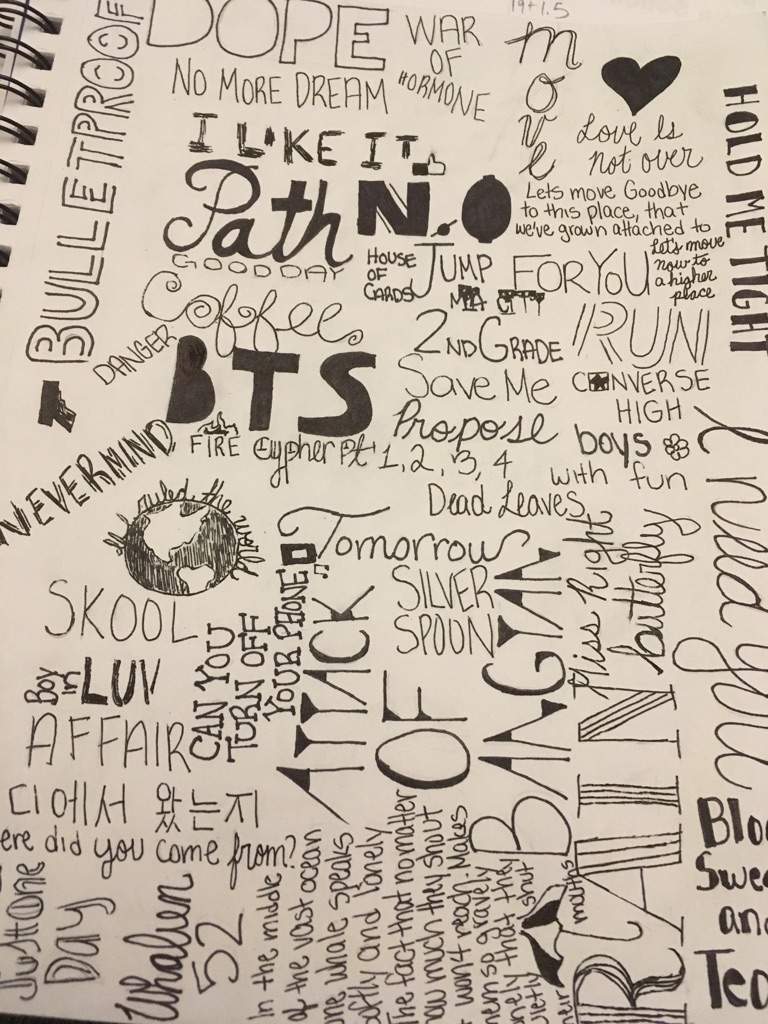 19+1.5
DOPE
WAR
OF
HORMONE
move
BULLETPROOF
NO MORE DREAM
I LIKE IT
Love Is
not over
HOLD ME TIGHT
Path
N.O
Lets move Goodbye
to this place, that
we've grown attached to
Let's move
now to
a higher
place
GOOD DAY
HOUSE
OF
CARDS
JUMP
FOR YOU
MA CITY
Coffee
DANGER
2ND GRADE
RUN
BTS
Save Me
CONVERSE
HIGH
Propose
boys
with fun
NEVERMIND
FIRE
Cypher Pt 1, 2, 3, 4
Dead Leaves
I need you
ruled the world
Tomorrow
SKOOL
SILVER
SPOON
Miss Right
butterfly
Boy
in
LUV
AFFAIR
CAN YOU
TURN OFF
YOUR PHONE
ATTACK
OF
BANGTAN
RAIN
디에서 왔는지
ere did you come from?
Just One
Day
Whalien
52
In the middle
of the vast ocean
one whale speaks
softly and lonely
The fact that no matter
how much they shout
won't reach. Makes
them so gravely
lonely that they
quietly shut
their
mouths
Bloo
Swea
and
Tea